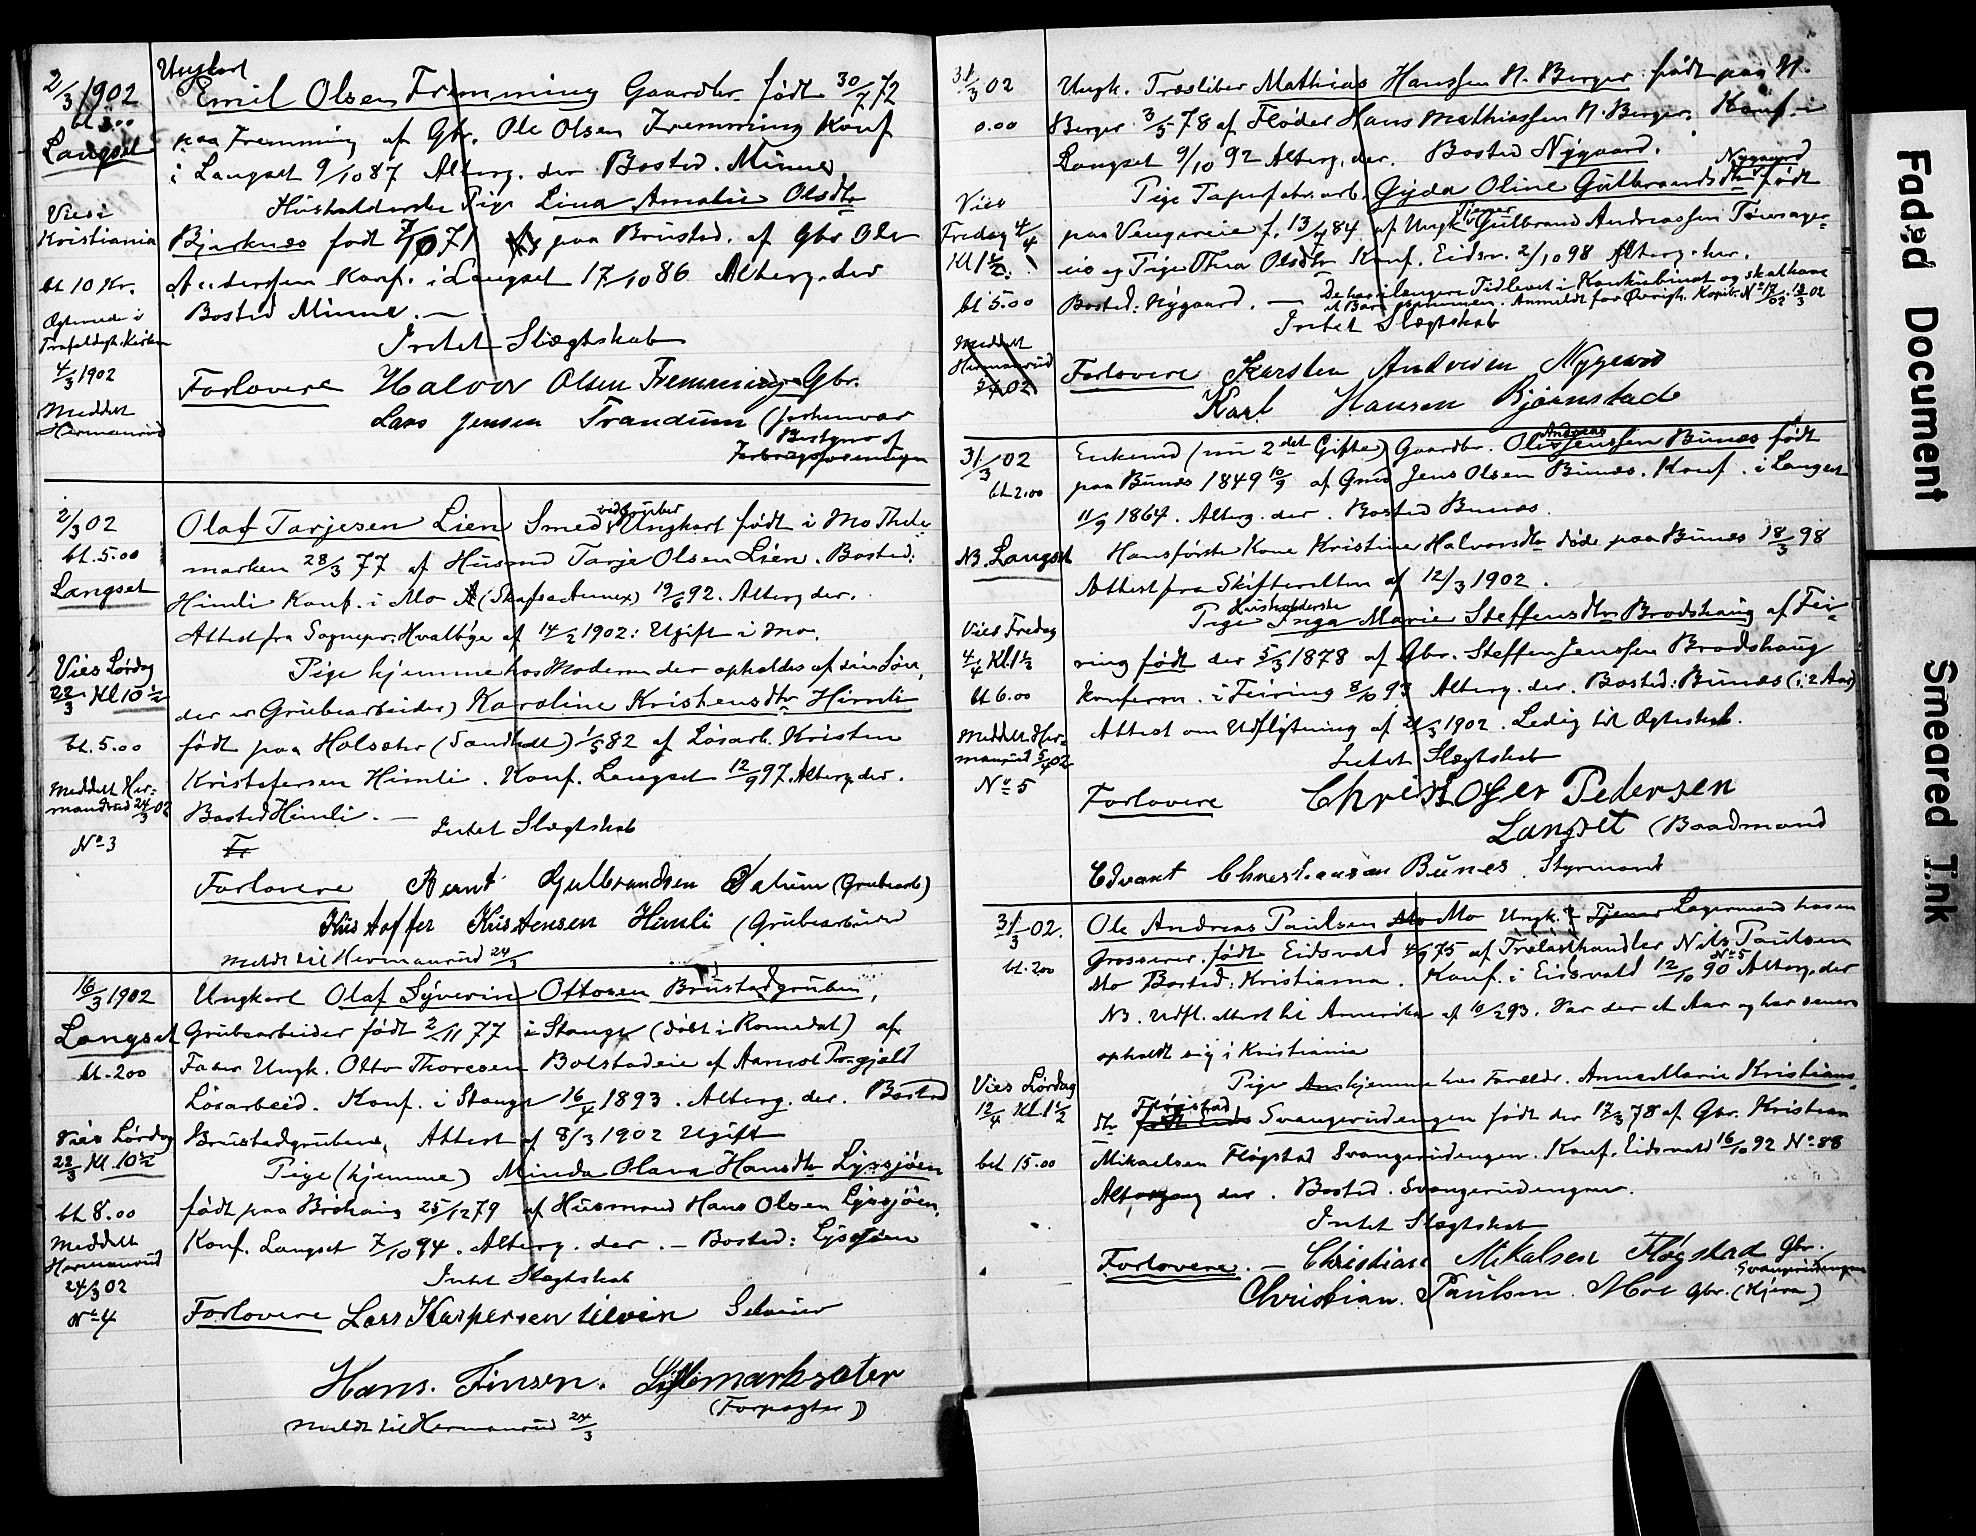 2/3 1902
bt 2.00
Langset
Vies i
Kristiania
bt 10 Kr.
Egteviede i
Trefoldigh. Kirken
4/3 1902
Meddelt
Hermanrud
Ungkarl
Emil Olsen Fremming Gaardbr. født 30/7 72
paa Fremming af Gbr. Ole Olsen Fremming Konf
i Langset 9/10 87 Alterg. der Bosted. Minne
Husholderske Pige Lina Amalie Olsdtr
Bjerknes født 7/10 71 paa Brustad. af Gbr Ole
Anderssen Konf. i Langset 17/10 86 Alterg. der
Bosted Minne. —
Intet Slægtskab
Forlovere Halvor Olsen Fremming Gbr.
Lars Jensen Trandum (
Bestyrer af
Forbrugsforeningen
2/3 02
bt. 5.00
Langset
Vies Lørdag
22/3 Kl 10 1/2
bt. 5.00
Meddelt Her-
mandrud 24/3 02
No 3
Olaf Tarjesen Lien Smed ved Gruber Ungkarl født i Mo Thele-
marken 28/3 77 af Husmd Tarje Olsen Lien. Bosted:
Himli Konf. i Mo (Skafse Annex) 19/6 92. Alterg der.
Attest fra Sognepr. Hvalbye af 14/2 1902: Ugift i Mo.
Pige hjemme hos Moderen der opholdes af sin Søn,
der er Grubearbeider) Karoline Kristensdtr Himli
født paa Holsæter ( ) 1/5 82 af Løsarb. Kristen
Kristofersen Himli. Konf. Langset 12/9 97. Alterg. der.
Bosted Himli. —
Intet Slægtskab
F.
Forlovere Bernt Gulbrandsen Dalum (Grubearb)
Kristoffer Kristensen Himli (Grubearbeider
Meldt til Hermanrud 24/3
16/3 1902
Langset
bt. 200
Vies Lørdag
22/3 Kl. 10 1/2
bt 8.00
Meddelt
Hermanrud
24/3 02
No 4
Ungkarl Olaf Syverin Ottosen Brustadgruben,
Grubearbeider født 2/11 77 i Stange (døbt i Romedal) af
Fader Ungk. Otto Thoresen Bolstadeie af Aamot
Løsarbeid. Konf. i Stange 16/4 1893. Alterg. der. Bosted
Brustadgruben. Attest af 8/3 1902 Ugift
Pige (hjemme) Minda Olava Hansdtr Lysjøen
født paa Brohaug 25/12 79 af Husmand Hans Olsen Lysjøen,
Konf. Langset 7/10 94. Alterg. der. — Bosted: Lysjøen
Intet Slægtskab
Forlovere Lars Kaspersen Ulvin Seleier
Hans. Finsen. Lyshmarksæter
(Forpagter)
Meldt til Hermanrud 24/3
31/3 02
0.00
Vies
Fredag 4/4
Kl 1 1/2.
bt 5.00
Meddelt
Hermanrud
5/4 02
Ungk. Træsliber Mathias Hanssen N. Berger født paa N.
Berger 3/5 78 af Fløder Hans Mathiassen N. Berger. Konf. i
Langset 9/10 92 Alterg. der. Bosted Nygaard.
Nygaard
Pige Tapetfabr. arb. Gyda Oline Gulbrandsdtr født
paa Vengereie f. 13/4 84 af Ungk. Tjener Gulbrand Andreassen
eie og Pige Thea Olsdtr Konf. Eidsv. 2/10 98 Alterg. her.
Bosted: Nygaard. — De have i længere Tid levet i Konkubinat og skal have
et Barn sammen. Anmeldt for Øvrigh. Kopib. No 17/02 18/3 02
Intet Slægtskab
Forlovere Karsten Andresen Nygaard
Karl Hansen Bjørnstad
31/3 02
bt 2.00
NB. Langset
Vies Fredag
4/4 Kl. 1 1/2
bt 6.00
Meddelt Her-
manrud 5/4 02
No 5
Enkemd (nu 2det Gifte) Gaardbr. Ole Andreas Jenssen Bunes født
paa Bunes 1849 10/9 af Gmd Jens Olsen Bunes. Konf. i Langset
11/9 1864. Alterg. der. Bosted Bunes.
Hans første Kone Kristine Halvorsdtr døde paa Bunes 18/3 98
Attest fra Skifteretten af 12/3 1902.
Pige Husholderske Inga Marie Steffensdtr Brodshaug af Fei-
ring født der 5/3 1878 af Gbr. Steffen Jenssen Brodshaug
konferm. i Feiring 8/10 93 Alterg. der. Bosted: Bunes (i 2 Aar)
Attest om Udflytning af 21/3 1902. Ledig til Ægteskab.
Intet Slægtskab
Forlovere Christofer Pedersen
Langset (Baadmand
Edvart Christiansen Bunes. Styrmand
31/3 02.
bt. 200
Vies Lørdag
12/4 Kl 1 1/2
bet 15.00
Ole Andreas Paulsen Mo Mo Ungk. Tjener Lagermand hos en
Grosserer. født Eidsvold 4/9 75 af Trælasthandler Nils Paulsen
Mo Bosted: Kristiania. Konf. i Eidsvold 12/10 90 No 5 Alterg. der
NB. Udfl. attest til Amerika af 10/2 93. Var der et Aar og har senere
opholdt sig i Kristiania
Pige hjemme hos Forældr. Anne Marie Kristians-
dtr Fløgstad født Eids Svangerudengen født der 17/3 78 af Gbr. Kristian
Mikaelsen Fløgstad Svangerudengen. Konf. Eidsvold 16/10 92 No 88
Altergang der. Bosted. Svangerudengen.
Intet Slægtskab
Forlovere. — Christian Mikalsen Fløgstad Gbr.
Svangerudengen
Christian. Paulsen. Moe Gbr. (Hjera)
Faded Document
Smeared Ink